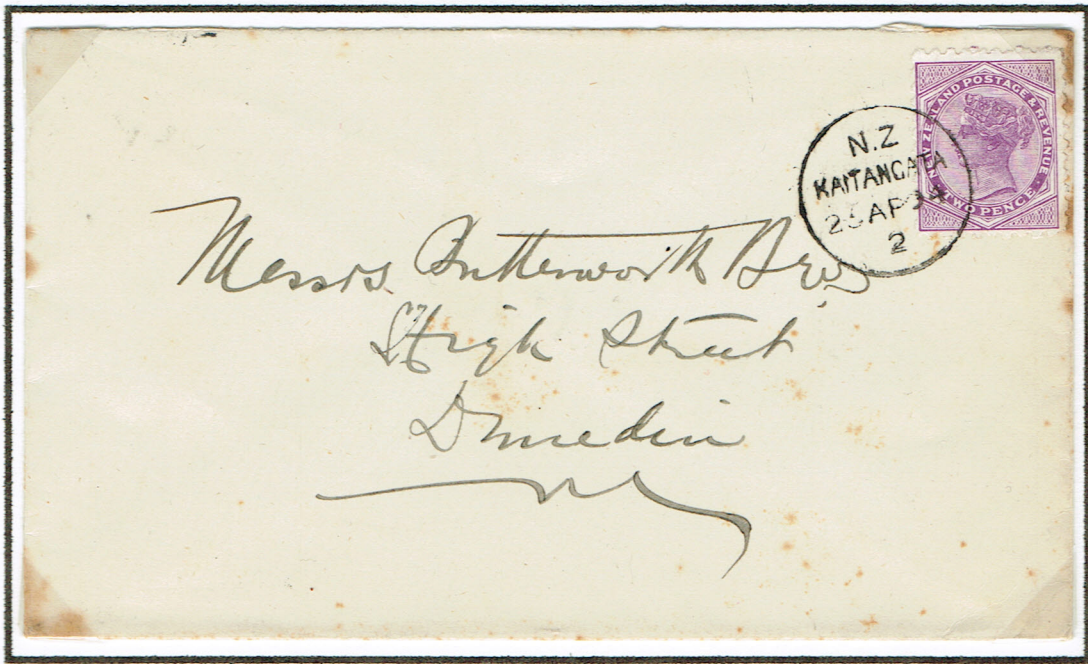 NEW ZEALAND POSTAGE & REVENUE
TWO PENCE
N.Z
KAITANGATA
AP
2
Messrs. Butterworth Bros
High Street
Dunedin